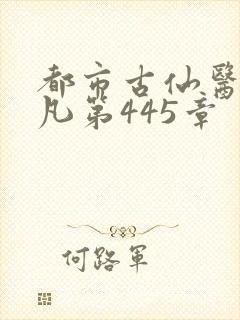 都市古仙醫
凡第445章
何路軍